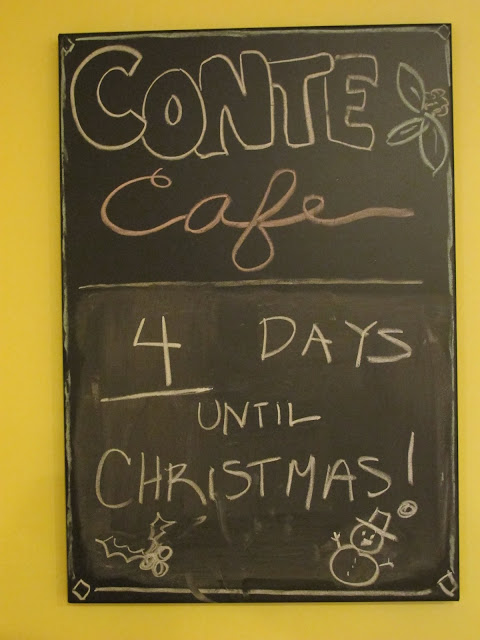 CONTE
Cafe
4 DAYS
UNTIL
CHRISTMAS!